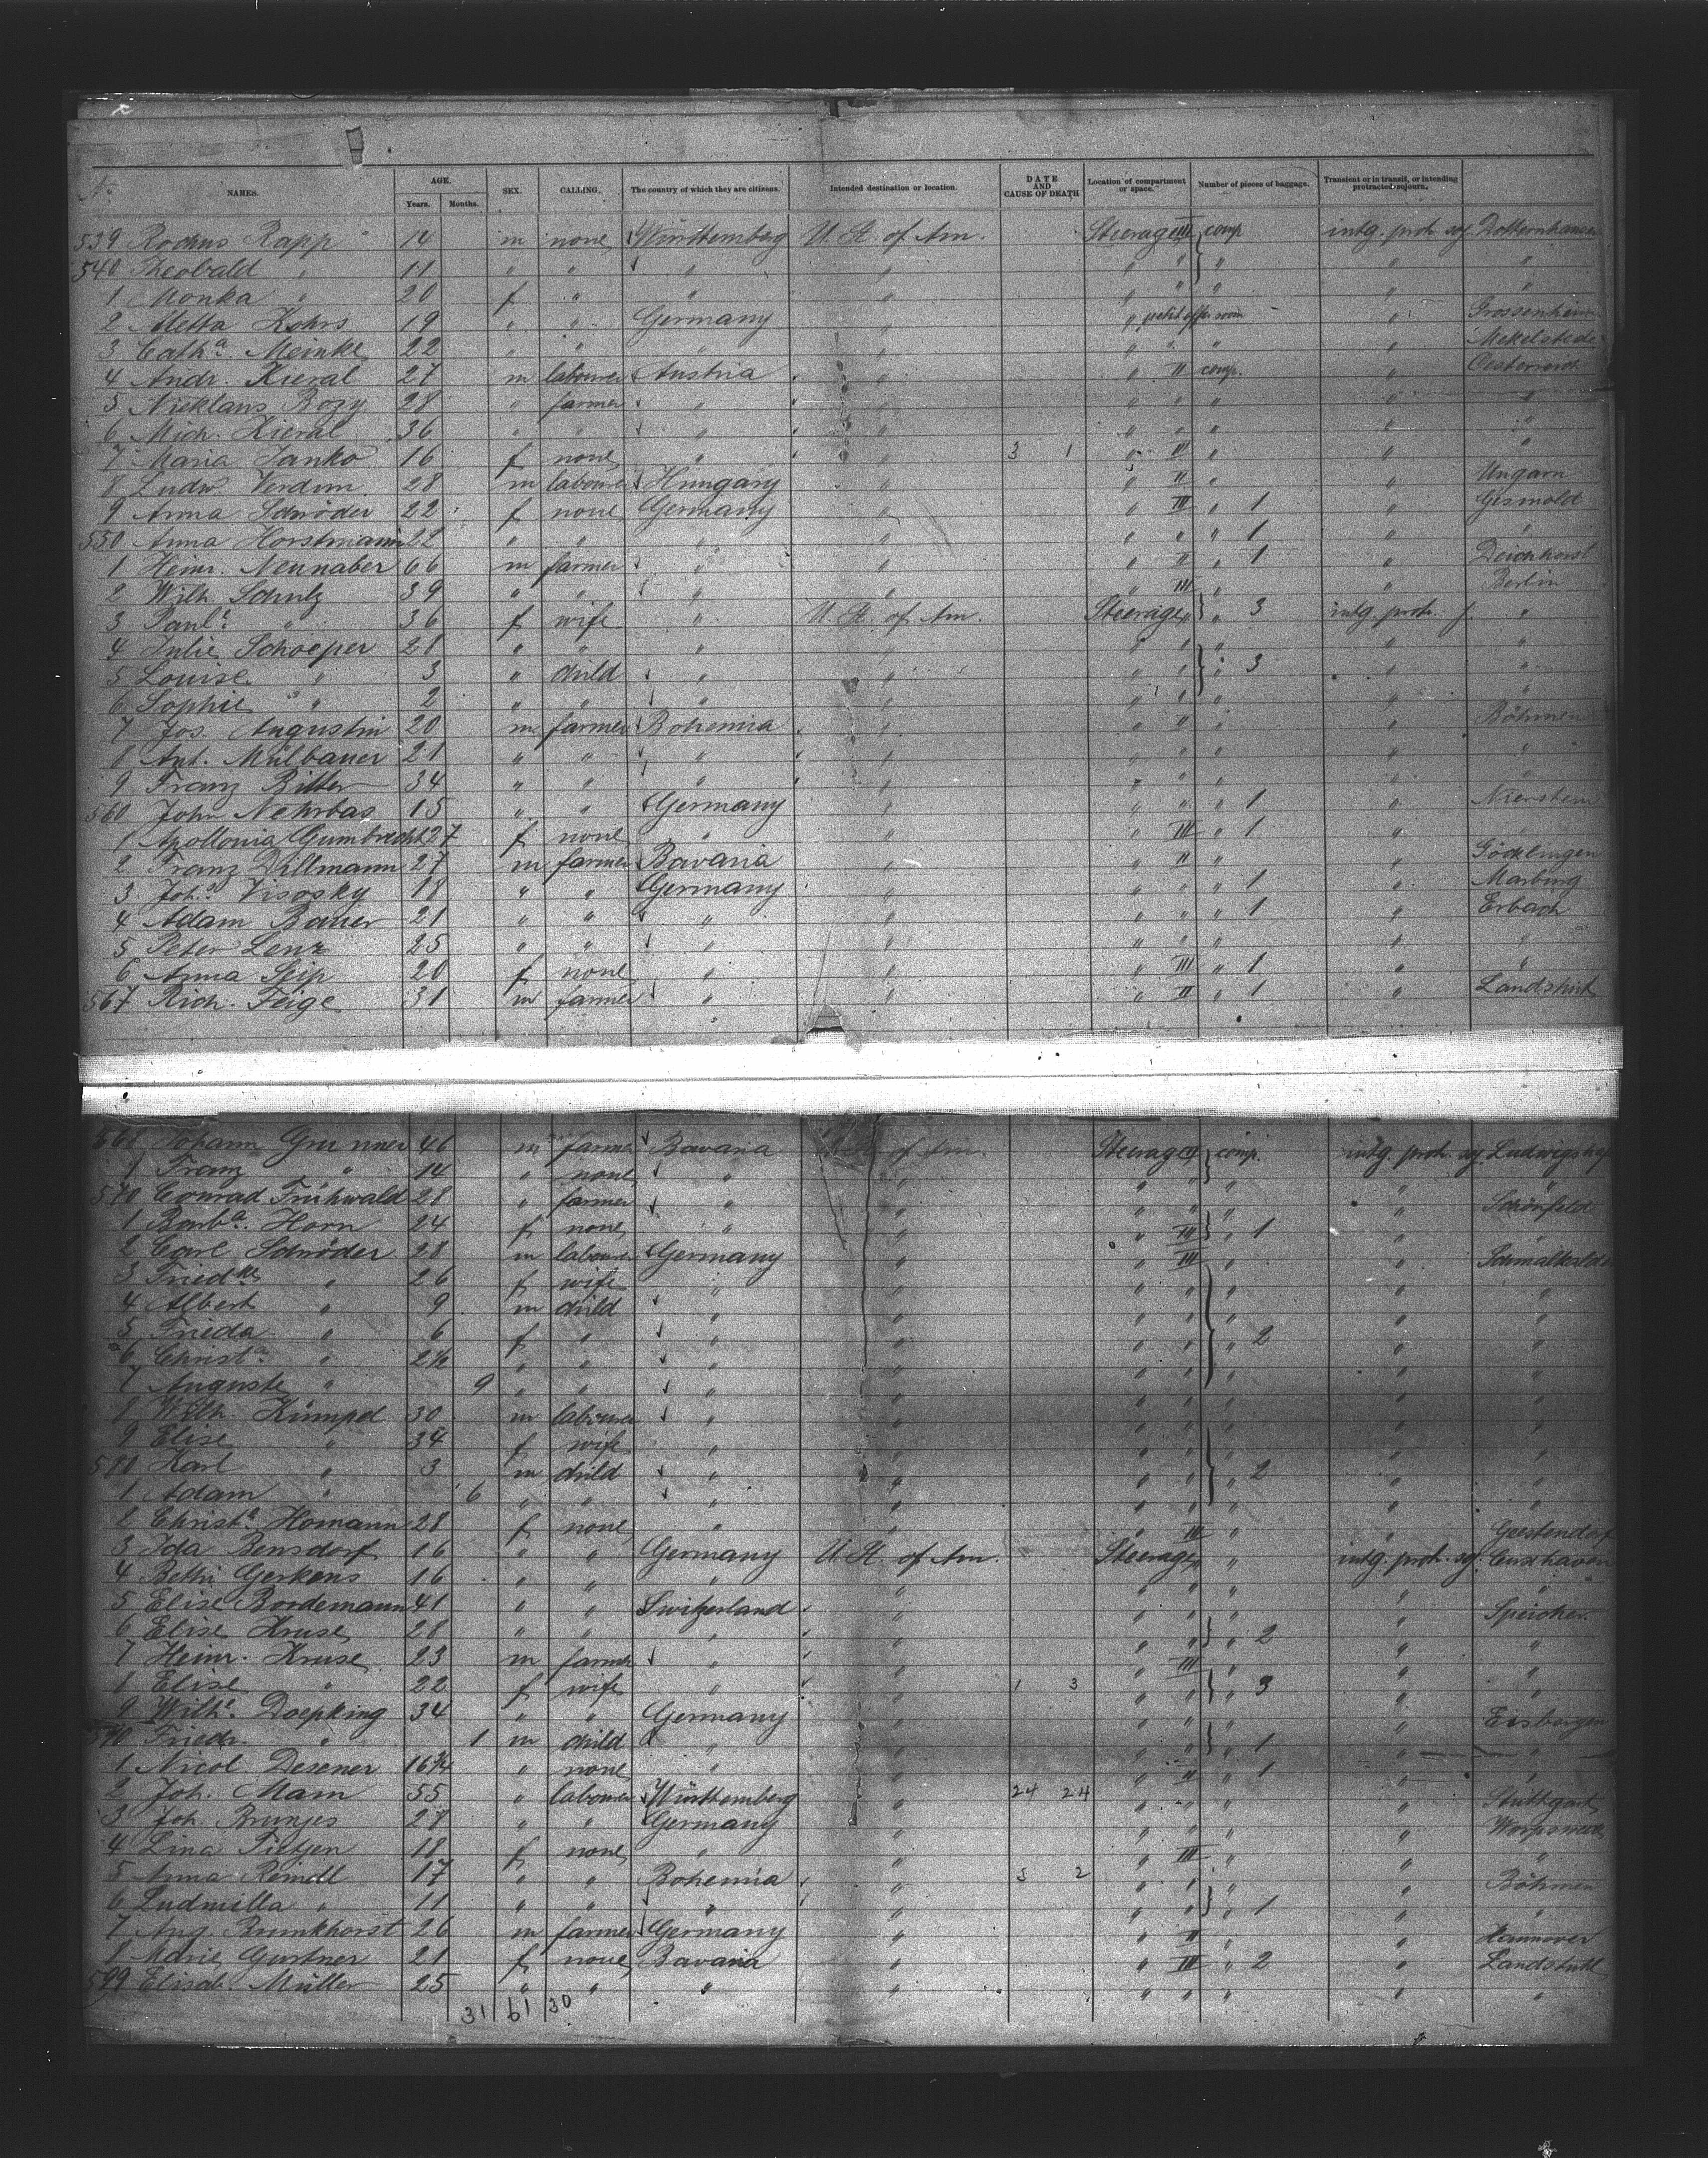 No. NAMES. AGE. Years. Months. SEX. CALLING. The country of which they are citizens. Intended destination or location. DATE AND CAUSE OF DEATH Location of compartment or space. Number of pieces of baggage. Transient or in transit, or intending protracted sojourn.
539 Rochus Rapp 14 m none Württemberg U. St. of Am. Steerage III comp intg. prot. soj. Dotternhausen
540 Theobald " 11 " " " " " " " " "
1 Monka " 20 f " " " " " " " "
2 Metta Kohrs 19 " " Germany " " " Grossenhein
3 Cath.a Meinke 22 " " " " " " " " Mekelstede
4 Andr. Kieral 27 m labourer Austria " " II comp. " Oesterreich
5 Nicklaus Bozy 28 " farmer " " " " " " "
6 Mich. Kieral 36 " " " " " " " " "
7 Maria Janko 16 f none " " 3 1 " II " " "
8 Ludw. Verdun 28 m labourer Hungary " " II " " Ungarn
9 Anna Schröder 22 f none Germany " " III " 1 " Gesmold
550 Anna Horstmann 22 " " " " " " " 1 " "
1 Heinr. Neunaber 66 m farmer " " " II " 1 " Deichhorst
2 Wilh. Schulz 39 " " " " " III " " Berlin
3 Paul.e " 36 f wife " U. St. of Am. Steerage " " 3 intg. prot. j. "
4 Julie Schoeper 28 " " " " " " " " "
5 Louise " 3 " child " " " " " 3 " "
6 Sophie " 2 " " " " " " " " "
7 Jos. Augustin 20 m farmer Bohemia " " II " " Böhmen
8 Ant. Mülbauer 21 " " " " " " " " "
9 Franz Ritter 34 " " " " " " " " "
560 John Nehrbas 15 " " Germany " " " " 1 " Nierstein
1 Apollonia Gumbrecht 27 f none " " " III " 1 " "
2 Franz Dillmann 27 m farmer Bavaria " " II " " Göcklingen
3 Joh.s Visosky 18 " " Germany " " " " 1 " Marburg
4 Adam Bauer 21 " " " " " " " 1 " Erbach
5 Peter Lenz 25 " " " " " " " " "
6 Anna Seip 20 f none " " " III " 1 " "
567 Rich. Feige 31 m farmer " " " II " 1 " Landshut
568 Johann 46 m farmer Bavaria of Am. Steerage II comp. intg. prot. soj. Ludwigshaf
9 Franz " 14 " none " " " " " " "
570 Conrad Frühwald 28 " farmer " " " " " " Schönfeld
1 Barb.a Horn 24 f none " " " III " 1 " "
2 Carl Schröder 28 m labourer Germany " " III " " Schmalkalden
3 Fried.ke " 26 f wife " " " " " " "
4 Albert " 9 m child " " " " " " "
5 Frieda " 6 f " " " " " " 2 " "
6 Christ.a " 2½ " " " " " " " " "
7 Auguste " 9 " " " " " " " " "
8 Wilh. Kümpel 30 m labourer " " " " " " "
9 Elise " 34 f wife " " " " " " "
580 Karl " 3 m child " " " " " 2 " "
1 Adam " 6 " " " " " " " " "
2 Christ.e Homann 28 f none " " " III " " Geestendorf
3 Ida Bensdorf 16 " " Germany U. St. of Am. Steerage " " intg. prot. soj. Cuxhaven
4 Bethi Gerkens 16 " " " " " " " " "
5 Elise Bordemann 41 " " Switzerland " " " " " Speicher
6 Elise Kruse 28 " " " " " " " 2 " "
7 Heinr. Kruse 23 m farmer " " " III " " "
8 Elise " 22 f wife " " 1 3 " " " 3 " "
9 Wilh.e Doepking 34 " " Germany " " " " " Eisbergen
590 Friedr. " 1 m child " " " " " 1 " "
1 Nicol Desener 16¾ " none " " " II " 1 " "
2 Joh. Mann 55 " labourer Württemberg " 24 24 " " " " Stuttgart
3 Joh. Brunjes 28 " " Germany " " " " " Worpswede
4 Lina Tietjen 18 f none " " " III " " "
5 Anna Reindl 17 " " Bohemia " 3 2 " " " " Böhmen
6 Ludmilla " 11 " " " " " " " 1 " "
7 Aug. Brunkhorst 26 m farmer Germany " " II " " Hannover
8 Marie Gurtner 21 f none Bavaria " " III " 2 " Landstuhl
599 Elisab. Müller 25 " " " " " " " " "
31 61 30